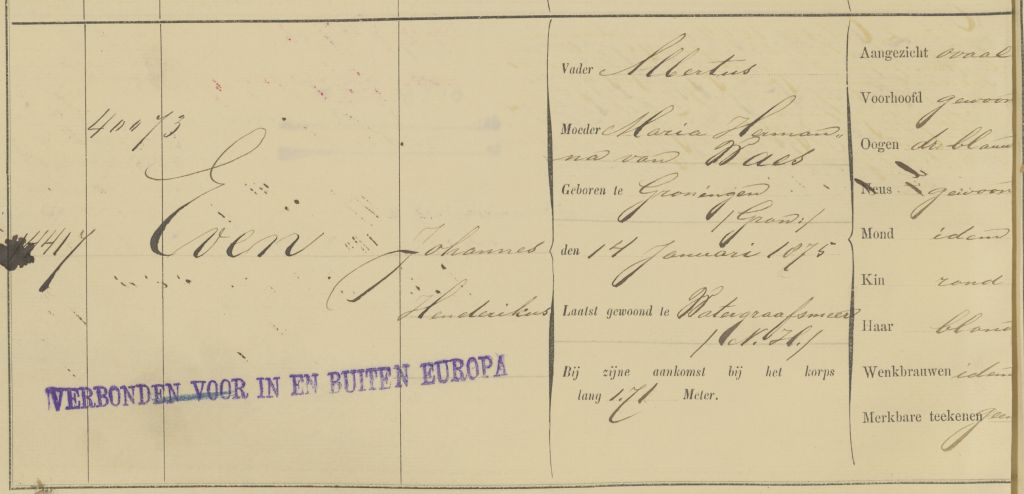 40073
4417
Even
Johannes
Henderikus
VERBONDEN VOOR IN EN BUITEN EUROPA
Vader Albertus
Moeder Maria Herman„
na van Waes
Geboren te Groningen
/Gron:/
den 14 Januari 1875
Laatst gewoond te Watergraafsmeer
/N. H./
Bij zijne aankomst bij het korps
lang 1.71 Meter.
Aangezicht ovaal
Voorhoofd gewoon
Oogen dr. blauw
Neus gewoon
Mond idem
Kin rond
Haar blond
Wenkbrauwen idem
Merkbare teekenen geen